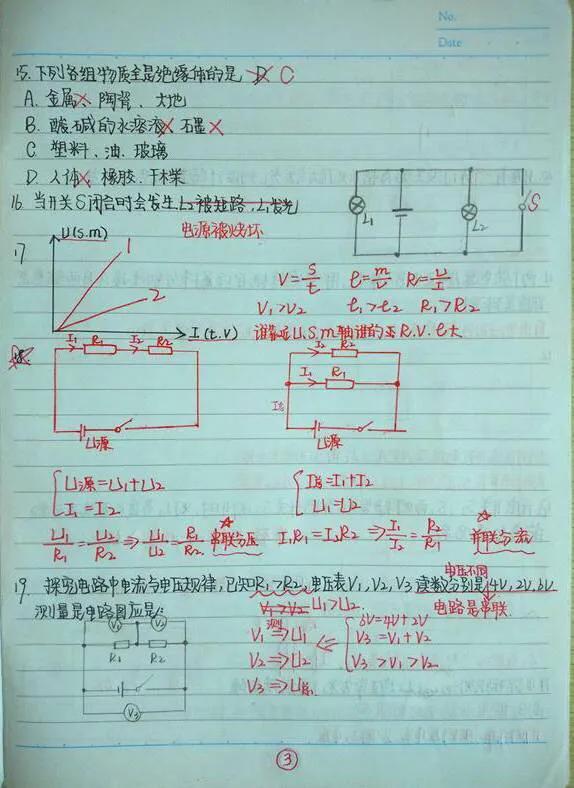 No.
Date
15. 下列各组物质全是绝缘体的是 D C
A. 金属、陶瓷、大地
B. 酸、碱的水溶液、石墨
C. 塑料、油、玻璃
D. 人体、橡胶、干木柴
16. 当开关S闭合时会发生L₂被短路,L₁发光
电源被烧坏
L₁ L₂ S
17
U(s.m)
1
2
I(t.v)
V=s/t ρ=m/v R=U/I
V₁>V₂ ρ₁>ρ₂ R₁>R₂
谁靠近U.S.m轴谁的R.V.ρ大
I₁ R₁ I₂ R₂
U源
I₂ R₂
I₁ R₁
I总
U源
U源=U₁+U₂
I₁=I₂
U₁/R₁=U₂/R₂ ⇒ U₁/U₂=R₁/R₂ 串联分压
I总=I₁+I₂
U₁=U₂
I₁R₁=I₂R₂ ⇒ I₁/I₂=R₂/R₁ 并联分流
电压不同
19. 探究电路中电流与电压规律,已知R₁>R₂,电压表V₁,V₂,V₃读数分别是4V,2V,6V
测量是电路图应是
V₁>V₂ U₁>U₂
电路是串联
V₁ V₂
R₁ R₂
V₃
测
V₁⇒U₁
V₂⇒U₂
V₃⇒U源
6V=4V+2V
V₃=V₁+V₂
V₃>V₁>V₂
3